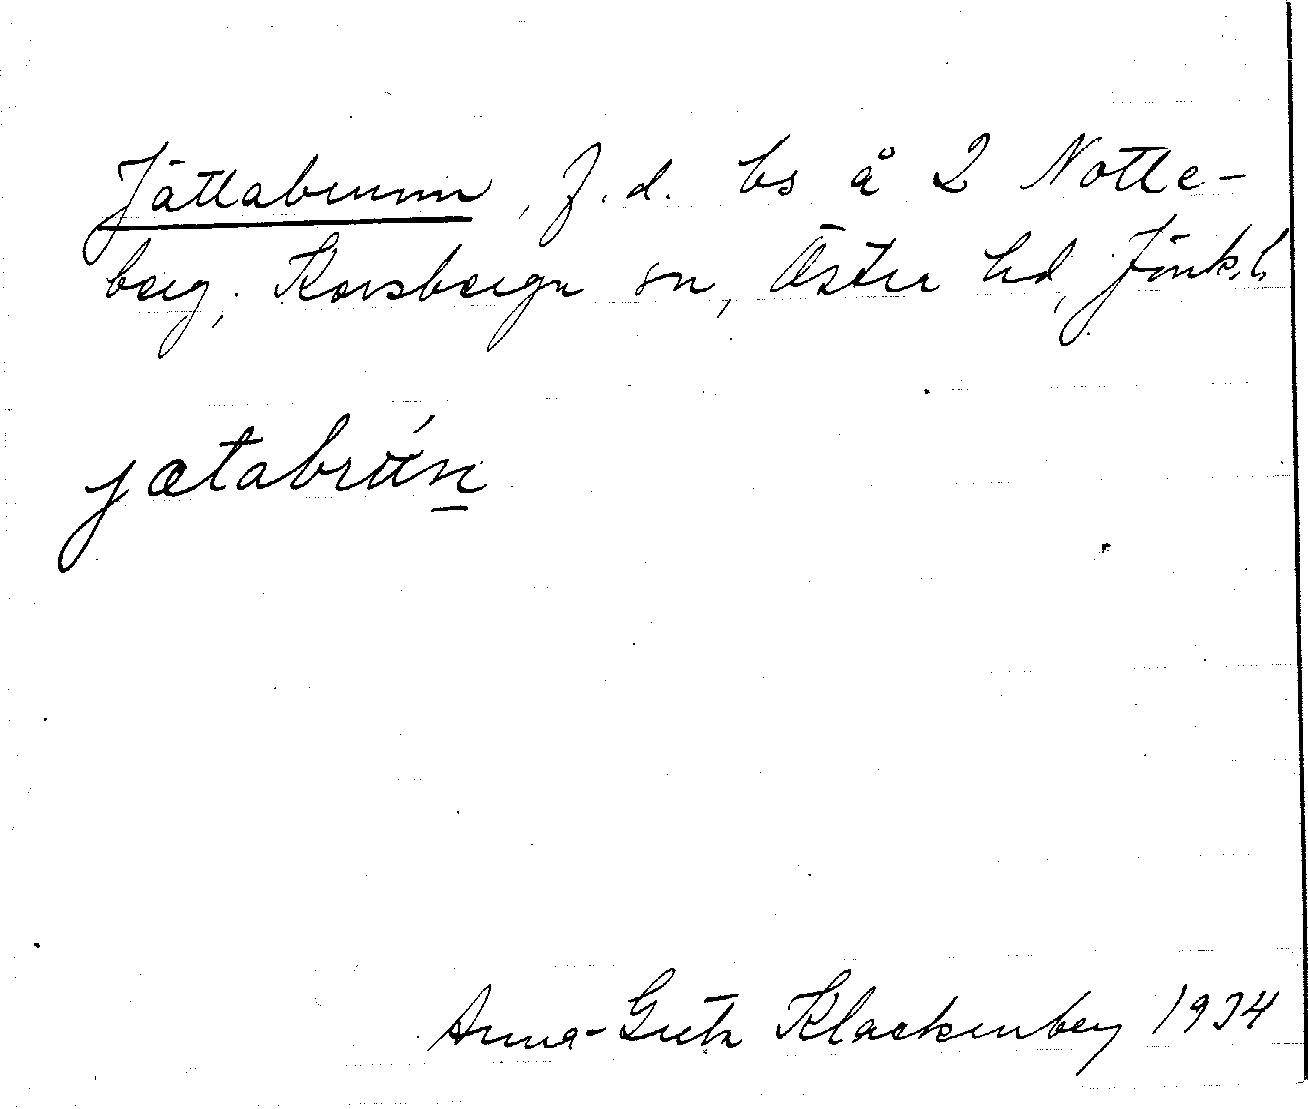 Jättabrunn, f.d. bs å 2 Notte-
berg, Korsberga sn, Östra hd, Jönk.l.
jætabrón
Anna-Greta Klackenberg 1934